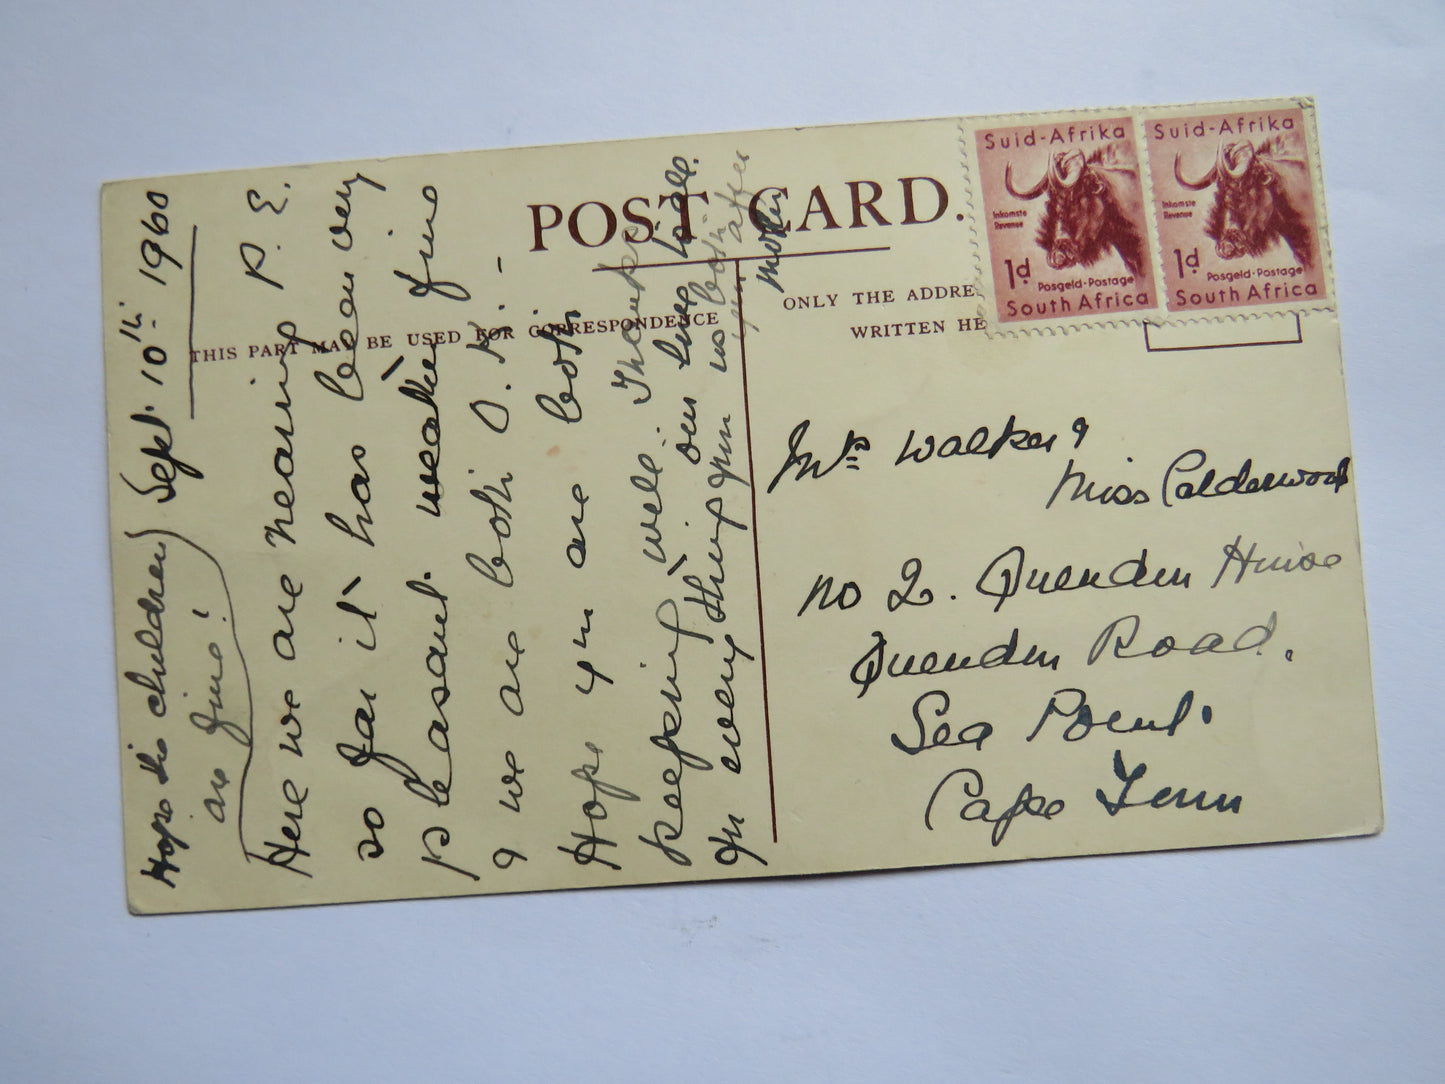 POST CARD.
THIS PART MAY BE USED FOR CORRESPONDENCE
ONLY THE ADDRE
WRITTEN HE
Suid-Afrika
Inkomste
Revenue
1d
Posgeld·Postage
South Africa
Suid-Afrika
Inkomste
Revenue
1d
Posgeld·Postage
South Africa
Sept. 10th 1960
Here we are nearing P. E.
so far it has been very
pleasant. weather fine
& we are both O.K. -
Hope you are both
keeping well. Thanks
for everything you both
our love to all.
Molly
Hope the children
are fine!
Mrs Walker &
Miss Calderwood
No 2. Quendon House
Quendon Road.
Sea Point.
Cape Town